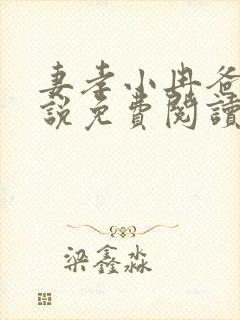 妻孝小冉爸
說免費閱讀
梁鑫淼